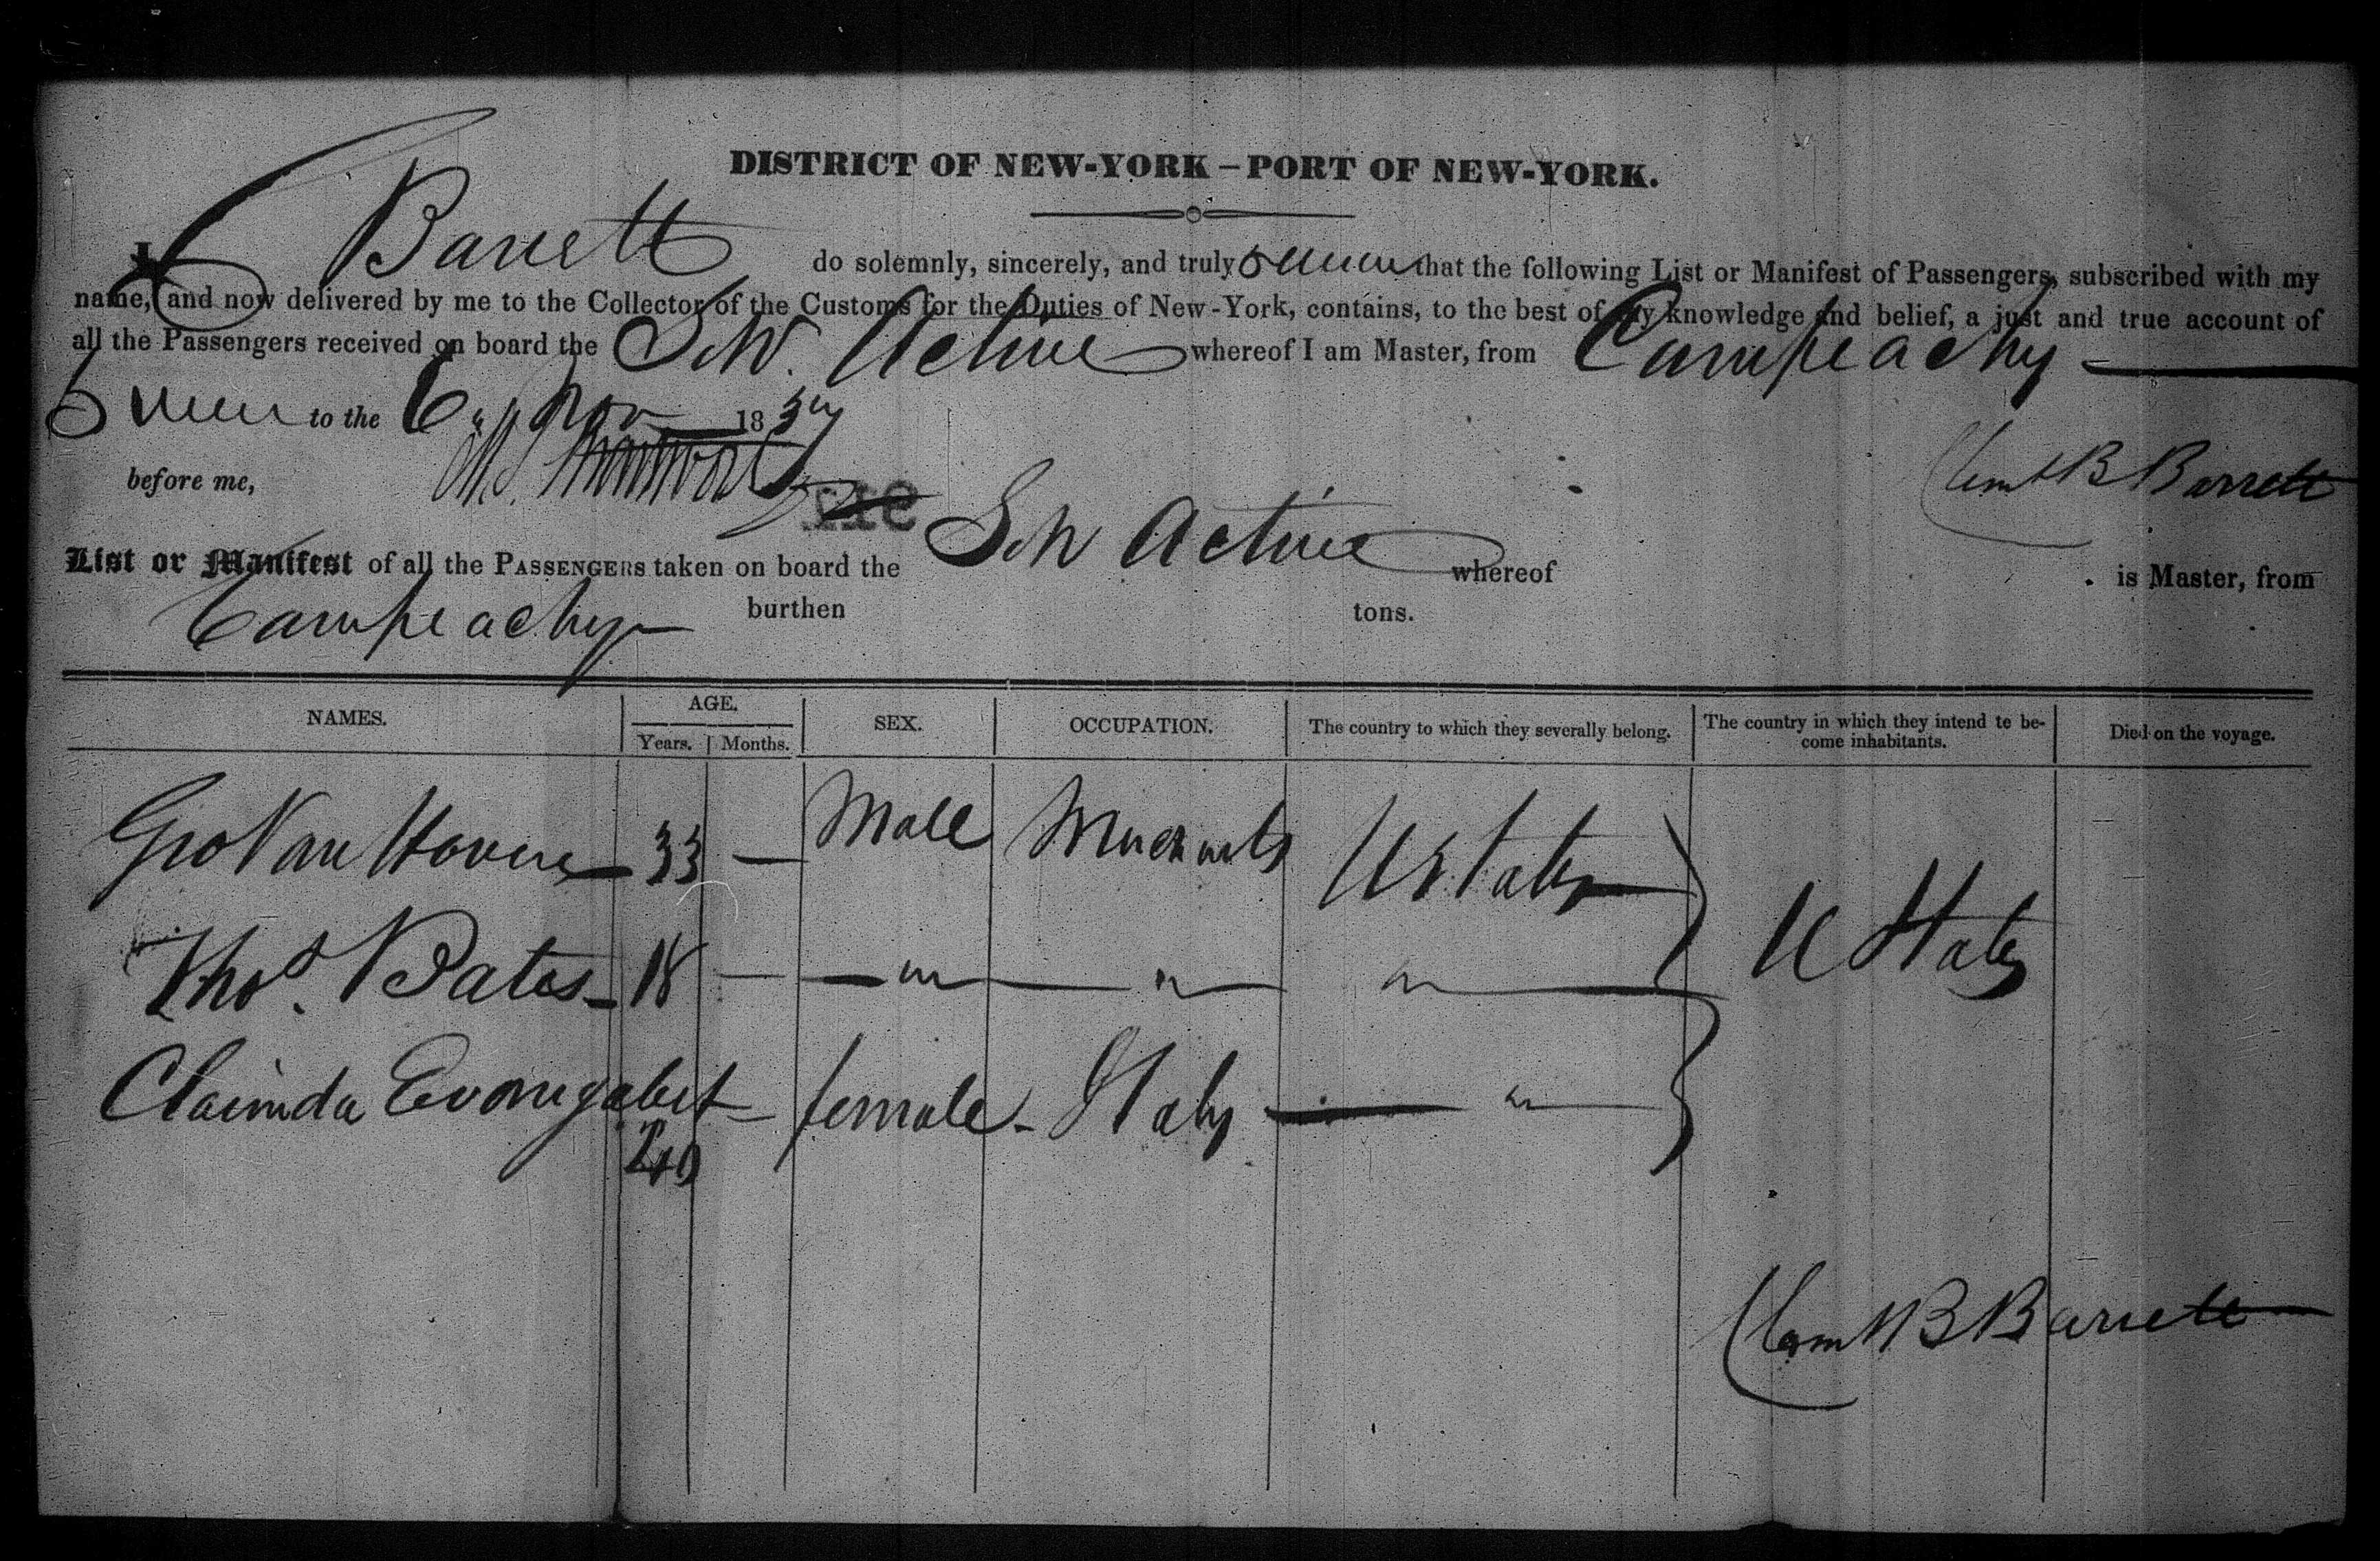 DISTRICT OF NEW-YORK – PORT OF NEW-YORK.
I, Barrett do solemnly, sincerely, and truly swear that the following List or Manifest of Passengers, subscribed with my
name, and now delivered by me to the Collector of the Customs for the Duties of New-York, contains, to the best of my knowledge and belief, a just and true account of
all the Passengers received on board the Sch. Active whereof I am Master, from Campeachy
Swern to the 6 Nov 1837
before me,
B Barrett
List or Manifest of all the PASSENGERS taken on board the Sch Active whereof . is Master, from
Campeachy burthen tons.
NAMES. AGE. SEX. OCCUPATION. The country to which they severally belong. The country in which they intend te become inhabitants. Died on the voyage.
Years. Months.
Geo Van Hovere 33 — Male Merchants U States
Thos. Bates 18 — " " " U States
Claimda female Italy "
40
B Barrett